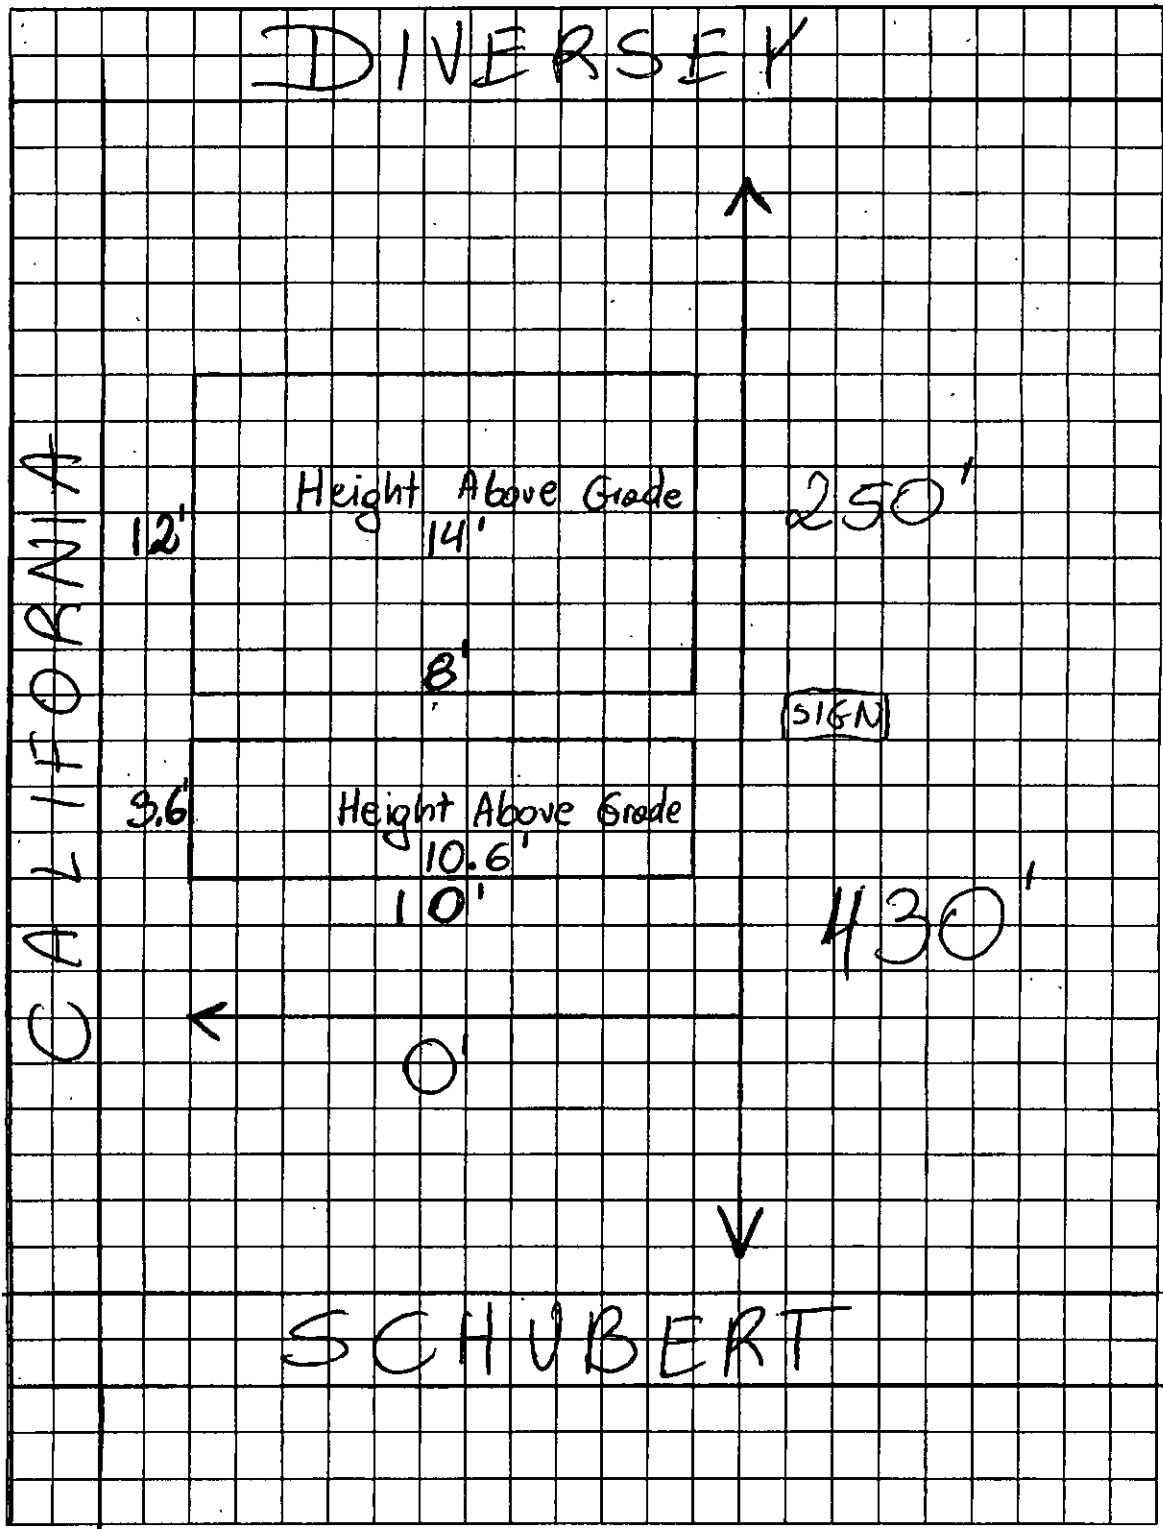 DIVERSEY
CALIFORNIA
Height Above Grade
12'
14'
250'
8'
SIGN
3.6'
Height Above Grade
10.6'
10'
430'
0'
SCHUBERT